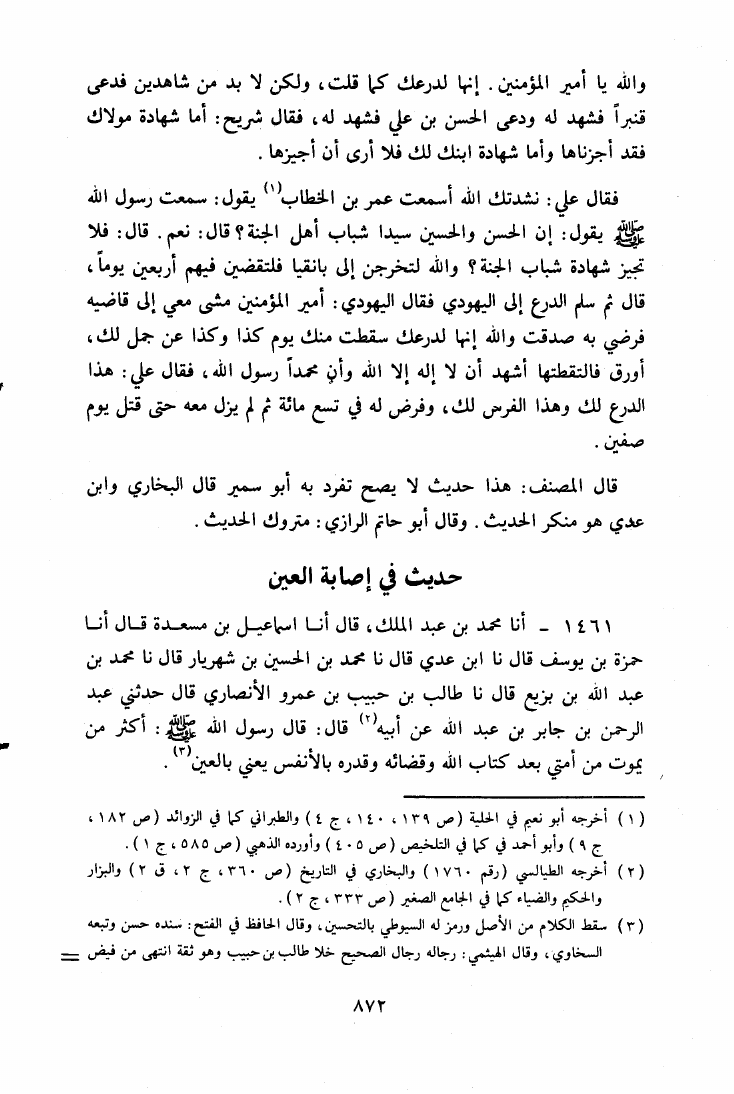 والله يا أمير المؤمنين. إنها لدرعك كما قلت، ولكن لا بد من شاهدين فدعى
قنبراً فشهد له ودعى الحسن بن علي فشهد له، فقال شريح: أما شهادة مولاك
فقد أجزناها وأما شهادة ابنك لك فلا أرى أن أجيزها.
فقال علي: نشدتك الله أسمعت عمر بن الخطاب(١) يقول: سمعت رسول الله
ﷺ يقول: إن الحسن والحسين سيدا شباب أهل الجنة؟ قال: نعم. قال: فلا
تجيز شهادة شباب الجنة؟ والله لتخرجن إلى بانقيا فلتقضين فيهم أربعين يوماً،
قال ثم سلم الدرع إلى اليهودي فقال اليهودي: أمير المؤمنين مشى معي إلى قاضيه
فرضي به صدقت والله إنها لدرعك سقطت منك يوم كذا وكذا عن جمل لك،
أورق فالتقطتها أشهد أن لا إله إلا الله وأن محمداً رسول الله، فقال علي: هذا
الدرع لك وهذا الفرس لك، وفرض له في تسع مائة ثم لم يزل معه حتى قتل يوم
صفين.
قال المصنف: هذا حديث لا يصح تفرد به أبو سمير قال البخاري وابن
عدي هو منكر الحديث. وقال أبو حاتم الرازي: متروك الحديث.
حديث في إصابة العين
١٤٦١ - أنا محمد بن عبد الملك، قال أنـا اسماعيـل بن مسعـدة قـال أنـا
حمزة بن يوسف قال نا ابن عدي قال نا محمد بن الحسين بن شهريار قال نا محمد بن
عبد الله بن بزيع قال نا طالب بن حبيب بن عمرو الأنصاري قال حدثني عبد
الرحمن بن جابر بن عبد الله عن أبيه(٢) قال: قال رسول الله ﷺ: أكثر من
يموت من أمتي بعد كتاب الله وقضائه وقدره بالأنفس يعني بالعين(٣).
(١) أخرجه أبو نعيم في الحلية (ص ١٣٩، ١٤٠، ج ٤) والطبراني كما في الزوائد (ص ١٨٢،
ج ٩) وأبو أحمد في كما في التلخيص (ص ٤٠٥) وأورده الذهبي (ص ٥٨٥، ج ١).
(٢) أخرجه الطيالسي (رقم ١٧٦٠) والبخاري في التاريخ (ص ٣٦٠، ج ٢، ق ٢) والبزار
والحكيم والضياء كما في الجامع الصغير (ص ٣٣٣، ج ٢).
(٣) سقط الكلام من الأصل ورمز له السيوطي بالتحسين، وقال الحافظ في الفتح: سنده حسن وتبعه
السخاوي، وقال الهيثمي: رجاله رجال الصحيح خلا طالب بن حبيب وهو ثقة انتهى من فيض =
٨٧٢